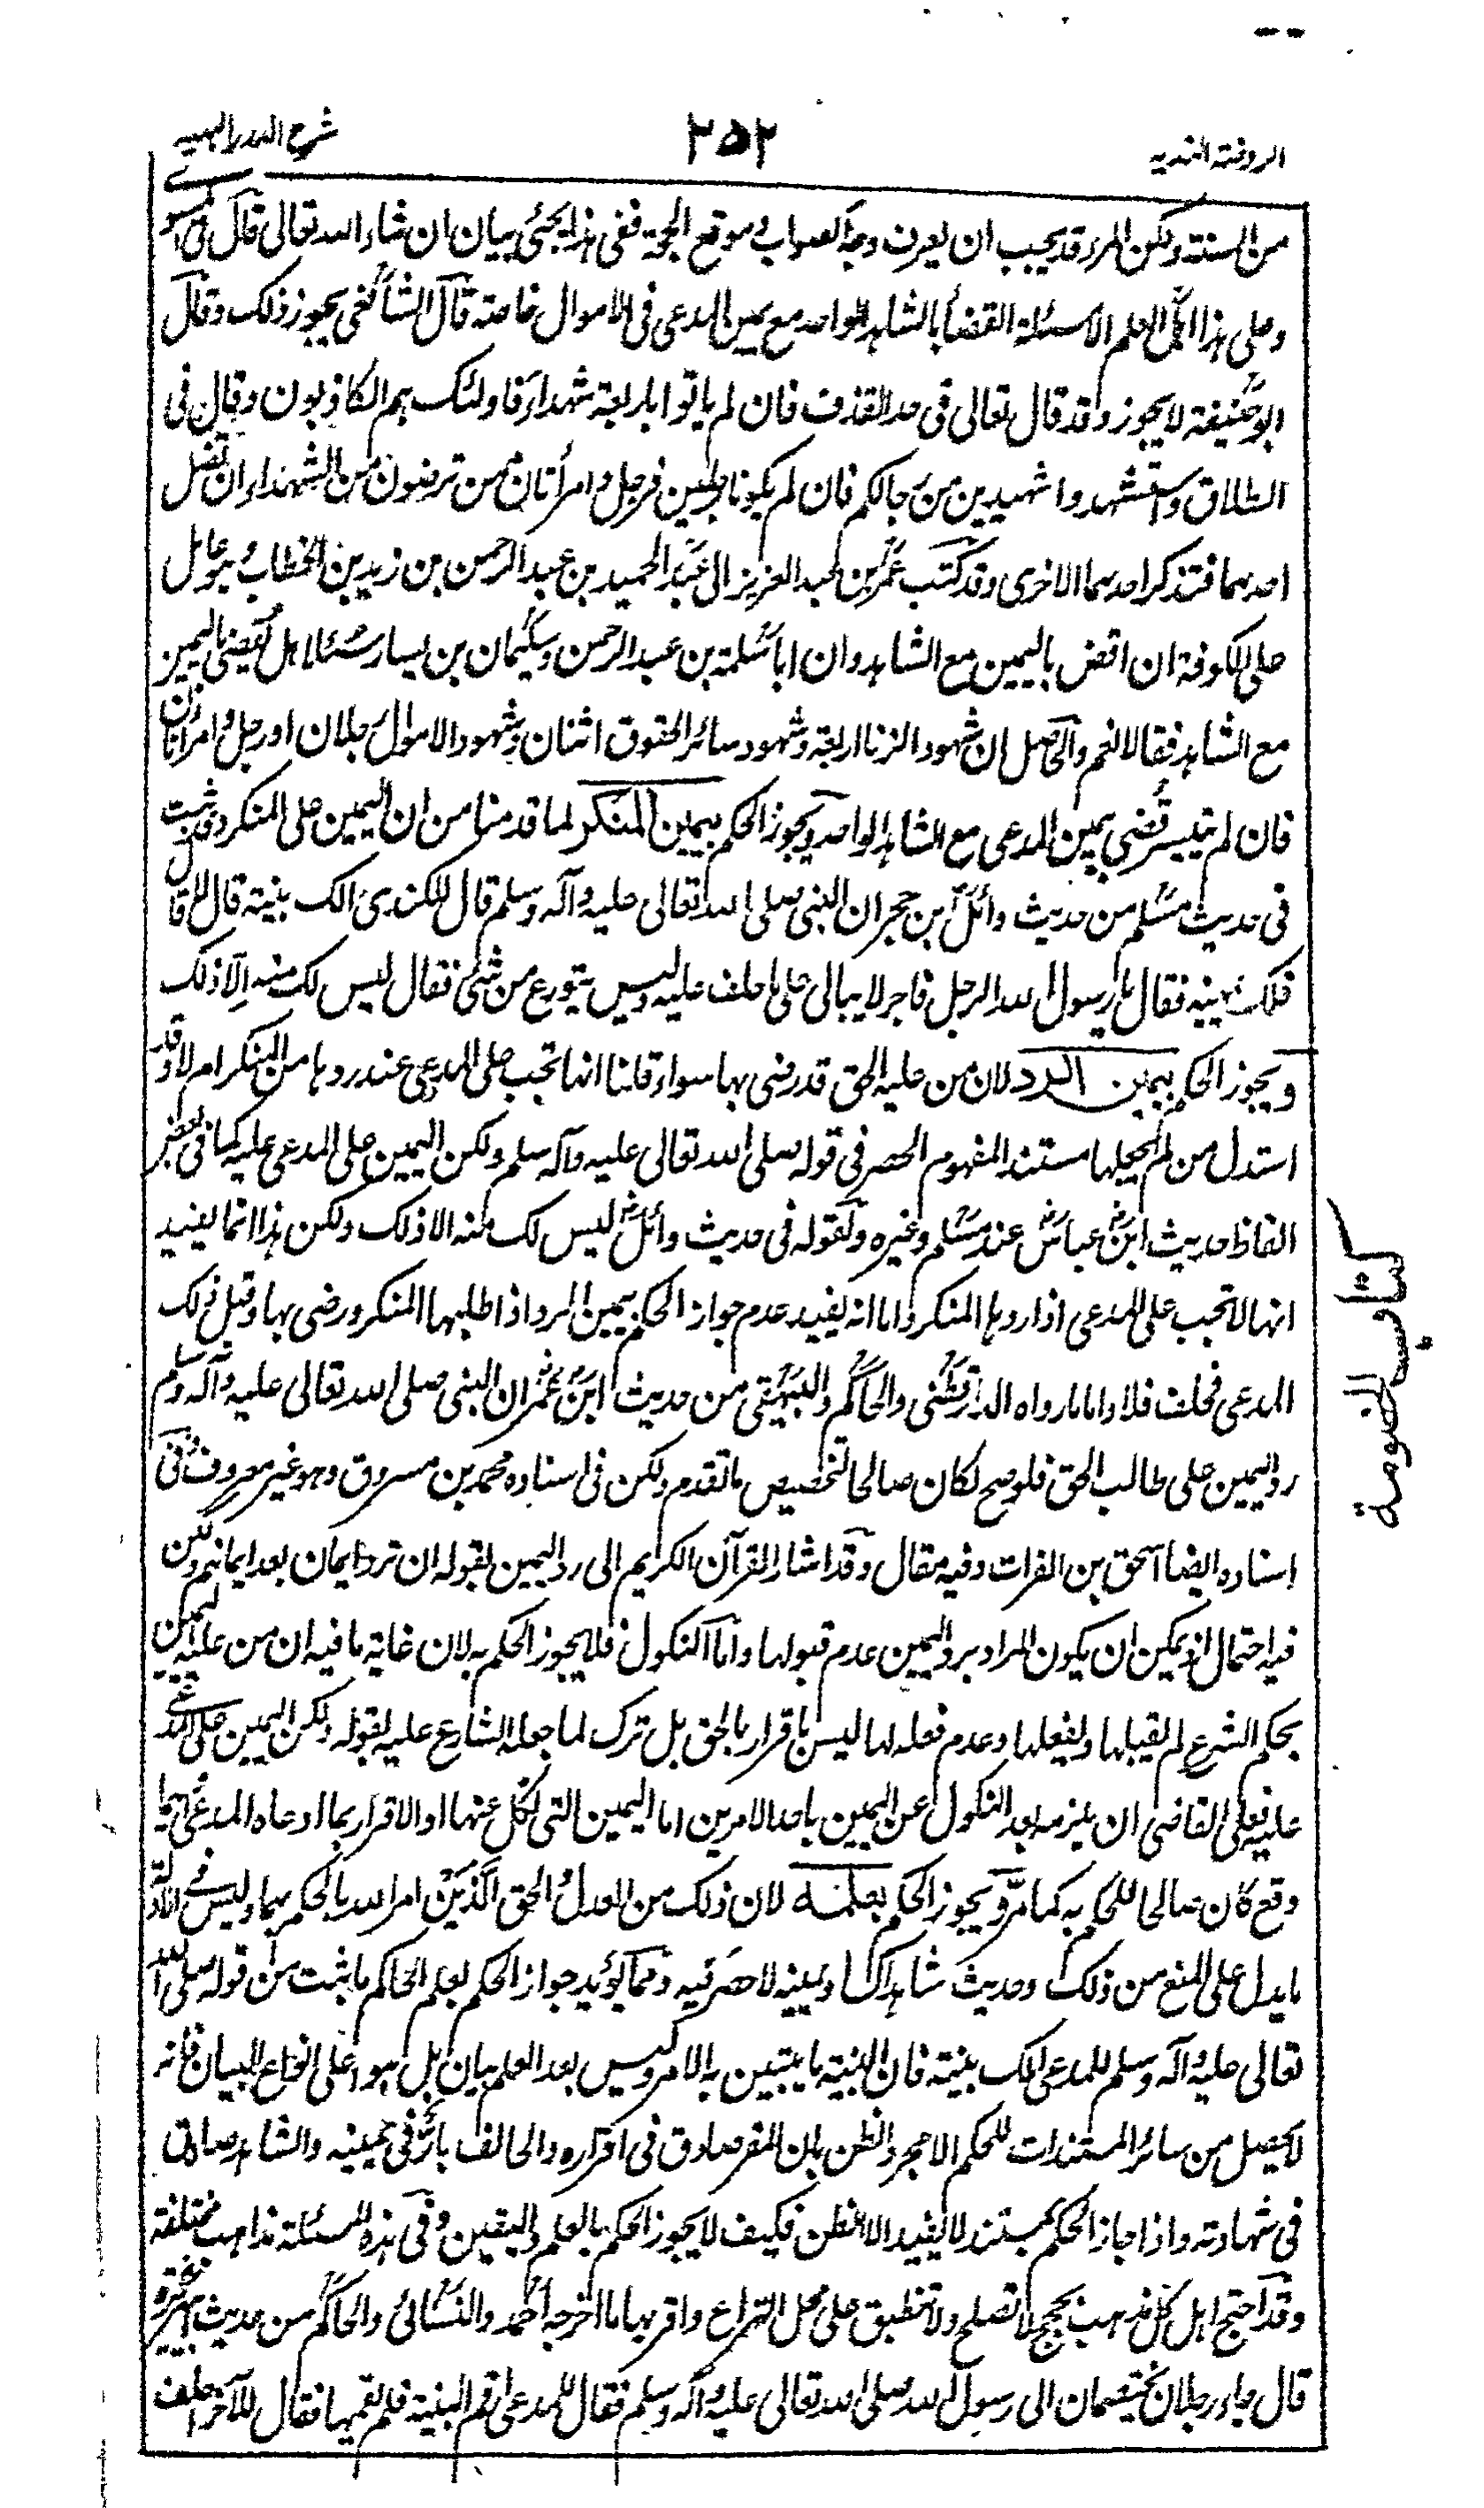 الروضة الندية
٢٥٢
شرح الدرر البهية
من السنة ولكن المرء قد يجب ان يعرف وجه الصواب فى موقع الحجة ففى هذا يجئ بيان ان شاء الله تعالى قال فى المسوى
وعلى هذا اهل العلم الا مسئلة القضاء بالشاهد الواحد مع يمين المدعى فى الاموال خاصة قال الشافعى يجوز ذلك وقال
ابو حنيفة لا يجوز وقد قال تعالى فى حد القذف فان لم ياتوا باربعة شهداء فاولئك هم الكاذبون وقال فى
الطلاق واستشهدوا شهيدين من رجالكم فان لم يكونا رجلين فرجل وامرأتان ممن ترضون من الشهداء ان تضل
احدهما فتذكر احدهما الاخرى وقد كتب عمر بن عبد العزيز الى عبد الحميد بن عبد الرحمن بن زيد بن الخطاب وهو عامل
على الكوفة ان اقض باليمين مع الشاهد وان ابا سلمة بن عبد الرحمن وسليمان بن يسار سئلا هل يقضى باليمين
مع الشاهد فقالا نعم والحاصل ان شهود الزنا اربعة وشهود سائر الحقوق اثنان وشهود الاموال رجلان او رجل وامرأتان
فان لم يتيسر قضى بيمين المدعى مع الشاهد الواحد ويجوز الحكم بيمين المنكر لما قدمنا من ان اليمين على المنكر وقد ثبت
فى حديث مسلم من حديث وائل بن حجر ان النبى صلى الله تعالى عليه وآله وسلم قال للكندى الك بينة قال لا قال
فلك يمينه فقال يا رسول الله الرجل فاجر لا يبالى على ما حلف عليه وليس يتورع من شئ فقال ليس لك منه الا ذلك
ويجوز الحكم بيمين الرد لان من عليه الحق قد رضى بها سواء قلنا انها تجب على المدعى عند ردها من المنكر ام لا وقد
استدل من لم يجعلها مستندا لمفهوم الحصر فى قوله صلى الله تعالى عليه وآله وسلم ولكن اليمين على المدعى عليه كما فى بعض
الفاظ حديث ابن عباس عند مسلم وغيره ولقوله فى حديث وائل ليس لك منه الا ذلك ولكن هذا انما يفيد
انها لا تجب على المدعى اذا ردها المنكر واما انه يفيد عدم جواز الحكم بيمين الرد اذا طلبها المنكر ورضى بها وقبل ذلك
المدعى فحلف فلا واما ما رواه الدارقطنى والحاكم والبيهقى من حديث ابن عمر ان النبى صلى الله تعالى عليه وآله وسلم
رد اليمين على طالب الحق فلو صح لكان صالحا لتخصيص ما تقدم ولكن فى اسناده محمد بن مسروق وهو غير معروف وفى
اسناده ايضا اسحق بن الفرات وفيه مقال وقد اشار القرآن الكريم الى رد اليمين بقوله ان ترد ايمان بعد ايمانهم ولكن
فيه احتمال اذ يمكن ان يكون المراد برد اليمين عدم قبولها واما النكول فلا يجوز الحكم به لان غاية ما فيه ان من عليه اليمين
بحكم الشرع لم يقبلها ويفعلها وعدم فعله لها ليس باقرار بالحق بل ترك لما جعله الشارع عليه بقوله ولكن اليمين على المدعى
عليه فعلى القاضى ان يلزمه بعد النكول عن اليمين باحد الامرين اما اليمين التى نكل عنها او الاقرار بما ادعاه المدعى وايهما
وقع كان صالحا للحكم به كما مر ويجوز الحكم بعلمه لان ذلك من العدل والحق الذين امر الله بالحكم بهما وليس فى الادلة
ما يدل على المنع من ذلك وحديث شاهداك او يمينه لا حصر فيه ومما يؤيد جواز الحكم بعلم الحاكم ما ثبت من قوله صلى الله
تعالى عليه وآله وسلم للمدعى الك بينة فان البينة ما يتبين به الامر وليس بعد العلم بيان بل هو اعلى انواع البيان فانه
لا يحصل من سائر المستندات للحكم الا مجرد الظن بان المقر صادق فى اقراره والحالف بار فى يمينه والشاهد صادق
فى شهادته واذا جاز الحكم بمستند لا يفيد الا الظن فكيف لا يجوز الحكم بالعلم واليقين وفى هذه المسئلة مذاهب مختلفة
وقد احتج اهل كل مذهب بحجج لا تصلح ولا تنطبق على محل النزاع واقربها ما اخرجه احمد والنسائى والحاكم من حديث ابى هريرة
قال جاء رجلان يختصمان الى رسول الله صلى الله تعالى عليه وآله وسلم فقال للمدعى اقم البينة فلم يقمها فقال للآخر احلف
كتاب الخصومة